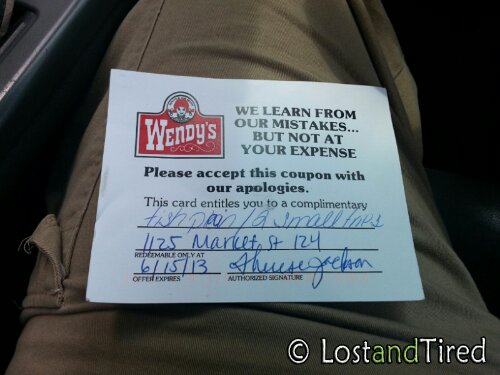 WENDY'S
WE LEARN FROM
OUR MISTAKES...
BUT NOT AT
YOUR EXPENSE
Please accept this coupon with
our apologies.
This card entitles you to a complimentary
fish / 2 small frys
1125 Market St 124
REDEEMABLE ONLY AT
6/15/13 Therese Jackson
OFFER EXPIRES AUTHORIZED SIGNATURE
© LostandTired